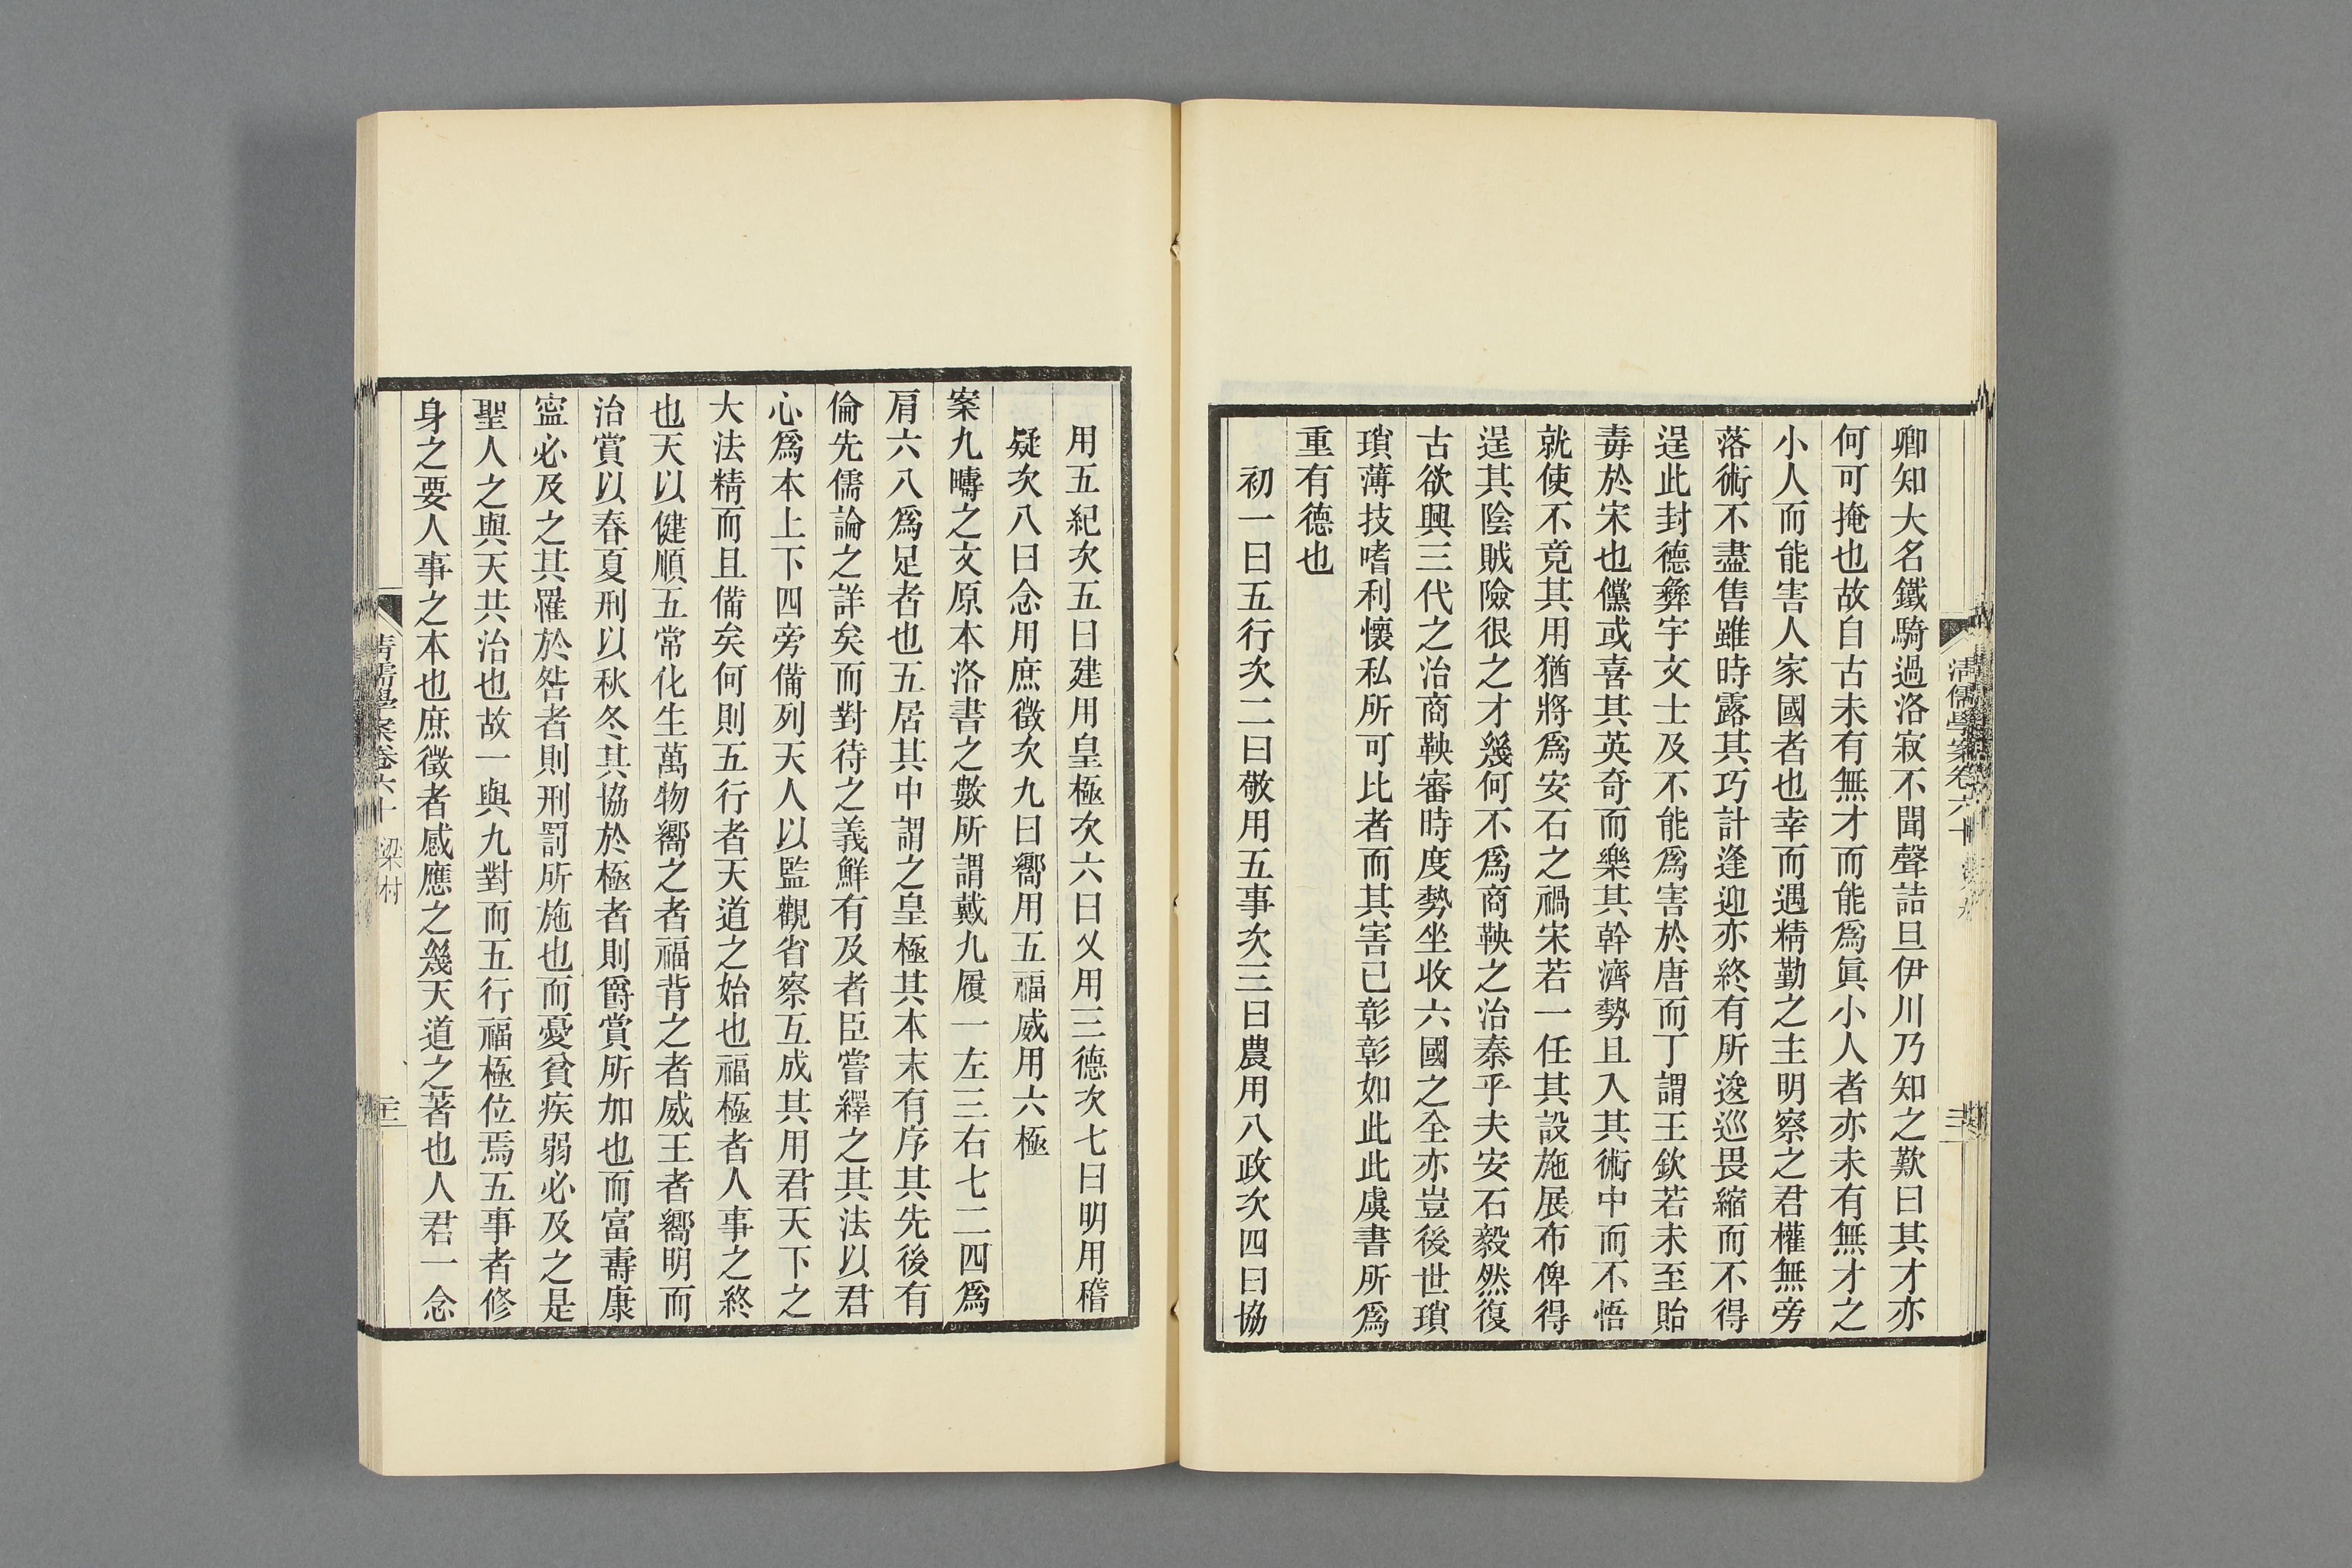 卿知大名鐵騎過洛寂不聞聲詰旦伊川乃知之歎曰其才亦
何可掩也故自古未有無才而能爲眞小人者亦未有無才之
小人而能害人家國者也幸而遇精勤之主明察之君權無旁
落術不盡售雖時露其巧計逢迎亦終有所逡巡畏縮而不得
逞此封德彝宇文士及不能爲害於唐而丁謂王欽若未至貽
毒於宋也儻或喜其英奇而樂其幹濟勢且入其術中而不悟
就使不竟其用猶將爲安石之禍宋若一任其設施展布俾得
逞其陰賊險很之才幾何不爲商鞅之治秦乎夫安石毅然復
古欲興三代之治商鞅審時度勢坐收六國之全亦豈後世瑣
瑣薄技嗜利懷私所可比者而其害已彰彰如此此虞書所爲
重有德也
初一曰五行次二曰敬用五事次三曰農用八政次四曰協
用五紀次五曰建用皇極次六曰乂用三德次七曰明用稽
疑次八曰念用庶徵次九曰嚮用五福威用六極
案九疇之文原本洛書之數所謂戴九履一左三右七二四爲
肩六八爲足者也五居其中謂之皇極其本末有序其先後有
倫先儒論之詳矣而對待之義鮮有及者臣嘗繹之其法以君
心爲本上下四旁備列天人以監觀省察互成其用君天下之
大法精而且備矣何則五行者天道之始也福極者人事之終
也天以健順五常化生萬物嚮之者福背之者威王者嚮明而
治賞以春夏刑以秋冬其協於極者則爵賞所加也而富壽康
寍必及之其罹於咎者則刑罰所施也而憂貧疾弱必及之是
聖人之與天共治也故一與九對而五行福極位焉五事者修
身之要人事之本也庶徵者感應之幾天道之著也人君一念
清儒學案卷六十 梁村